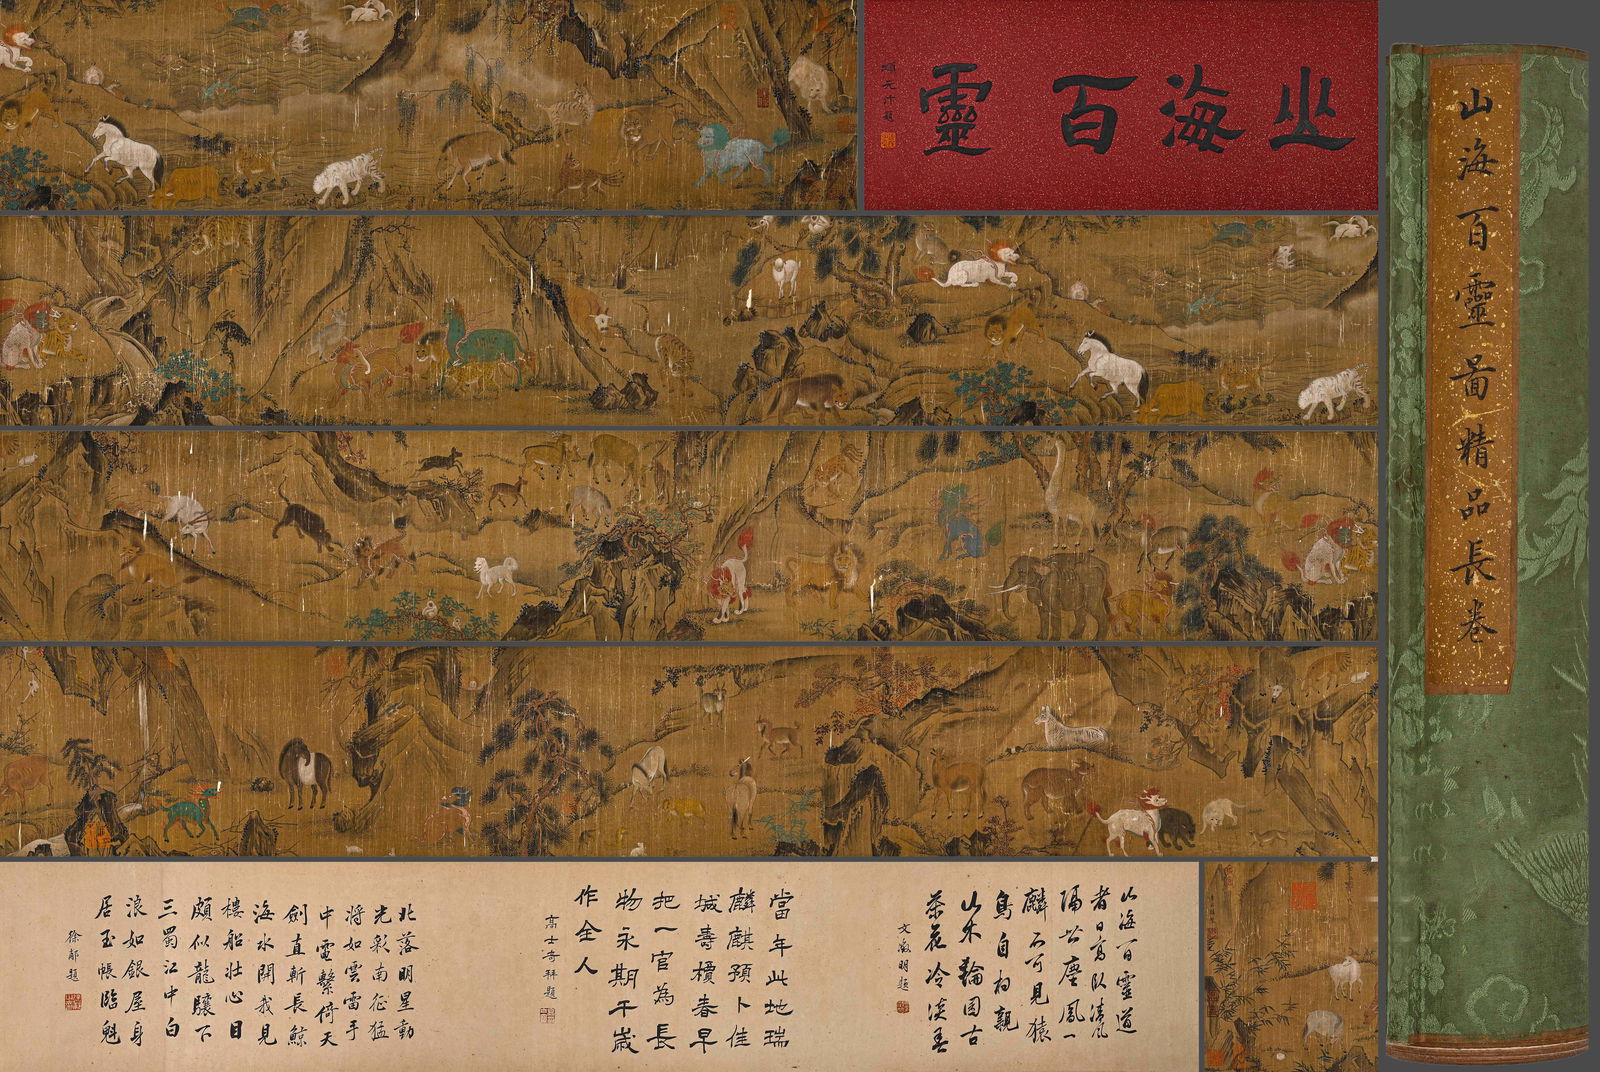 山海百靈
山海百靈圖精品長卷
山海百靈道
者日高臥清風
隔岩塵鳳一
麟不可見猿
鳥自相親
山木輪囷古
茶花冷淡春
文徵明題
當年此地瑞
麟麒預卜佳
城壽櫝春早
把一官為長
物永期千歲
作全人
高士奇拜題
北落明星動
光彩南征猛
將如雲雷手
中電擊倚天
劍直斬長鯨
海水開我見
樓船壯心目
頗似龍驤下
三蜀江中白
浪如銀屋身
居玉帳臨魁
徐郙題